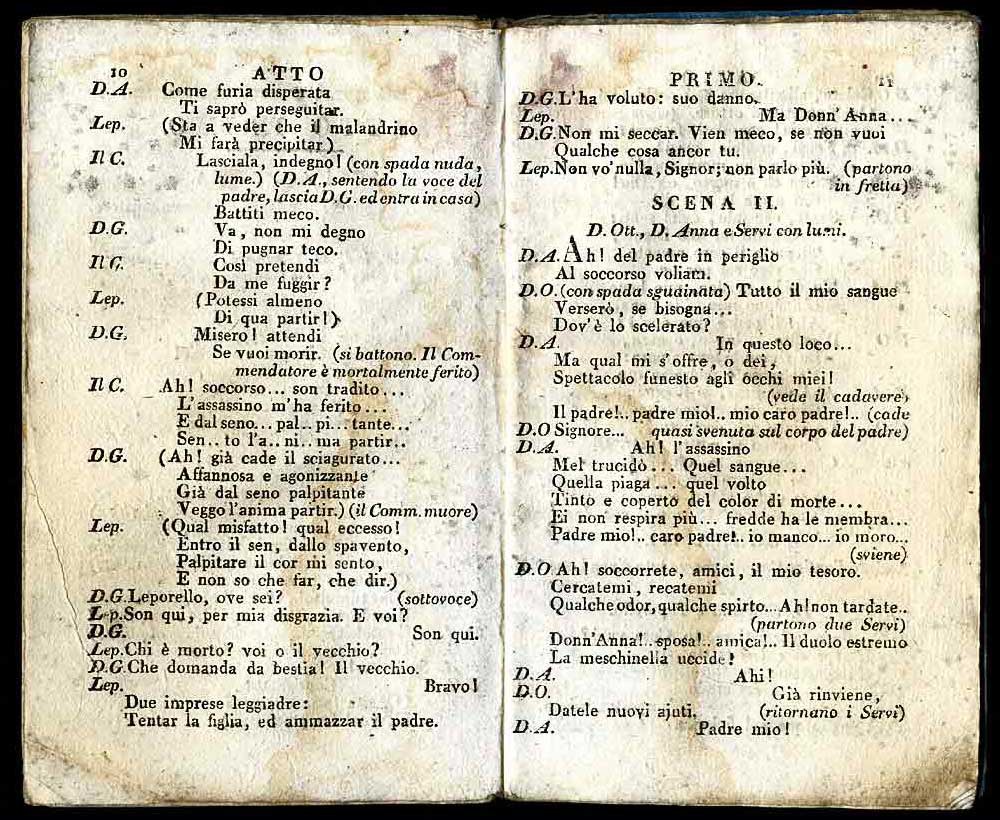 10 ATTO
D.A. Come furia disperata
Ti saprò perseguitar.
Lep. (Sta a veder che il malandrino
Mi farà precipitar)
Il C. Lasciala, indegno! (con spada nuda,
lume.) (D.A., sentendo la voce del
padre, lascia D.G. ed entra in casa)
Battiti meco.
D.G. Va, non mi degno
Di pugnar teco.
Il C. Così pretendi
Da me fuggir?
Lep. (Potessi almeno
Di qua partir!)
D.G. Misero! attendi
Se vuoi morir. (si battono. Il Com-
mendatore è mortalmente ferito)
Il C. Ah! soccorso... son tradito...
L'assassino m'ha ferito...
E dal seno... pal.. pi... tante...
Sen.. to l'a.. ni.. ma partir..
D.G. (Ah! già cade il sciagurato...
Affannosa e agonizzante
Già dal seno palpitante
Veggo l'anima partir.) (il Comm. muore)
Lep. (Qual misfatto! qual eccesso!
Entro il sen, dallo spavento,
Palpitare il cor mi sento,
E non so che far, che dir.)
D.G. Leporello, ove sei? (sottovoce)
Lep. Son qui, per mia disgrazia. E voi?
D.G. Son qui.
Lep. Chi è morto? voi o il vecchio?
D.G. Che domanda da bestia! Il vecchio.
Lep. Bravo!
Due imprese leggiadre:
Tentar la figlia, ed ammazzar il padre.
PRIMO. 11
D.G. L'ha voluto: suo danno.
Lep. Ma Donn'Anna...
D.G. Non mi seccar. Vien meco, se non vuoi
Qualche cosa ancor tu.
Lep. Non vo' nulla, Signor; non parlo più. (partono
in fretta)
SCENA II.
D. Ott., D. Anna e Servi con lumi.
D.A. Ah! del padre in periglio
Al soccorso voliam.
D.O. (con spada sguainata) Tutto il mio sangue
Verserò, se bisogna...
Dov'è lo scelerato?
D.A. In questo loco...
Ma qual mi s'offre, o dei,
Spettacolo funesto agli occhi miei!
(vede il cadavere)
Il padre!.. padre mio!.. mio caro padre!.. (cade
D.O Signore... quasi svenuta sul corpo del padre)
D.A. Ah! l'assassino
Mel trucidò... Quel sangue...
Quella piaga... quel volto
Tinto e coperto del color di morte...
Ei non respira più... fredde ha le membra...
Padre mio!.. caro padre!.. io manco... io moro...
(sviene)
D.O Ah! soccorrete, amici, il mio tesoro.
Cercatemi, recatemi
Qualche odor, qualche spirto... Ah! non tardate..
(partono due Servi)
Donn'Anna!.. sposa!.. amica!.. Il duolo estremo
La meschinella uccide!
D.A. Ahi!
D.O. Già rinviene,
Datele nuovi ajuti. (ritornano i Servi)
D.A. Padre mio!